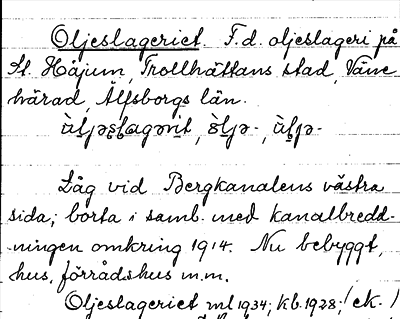 Oljeslageriet. F.d. oljeslageri på
St. Håjum, Trollhättans stad, Väne
härad, Älfsborgs län.
Låg vid Bergkanalens västra
sida; borta i samb. med kanalbredd-
ningen omkring 1914. Nu bebyggt,
hus, förrådshus m.m.
Oljeslageriet ml 1934; kb. 1928; (ek.)